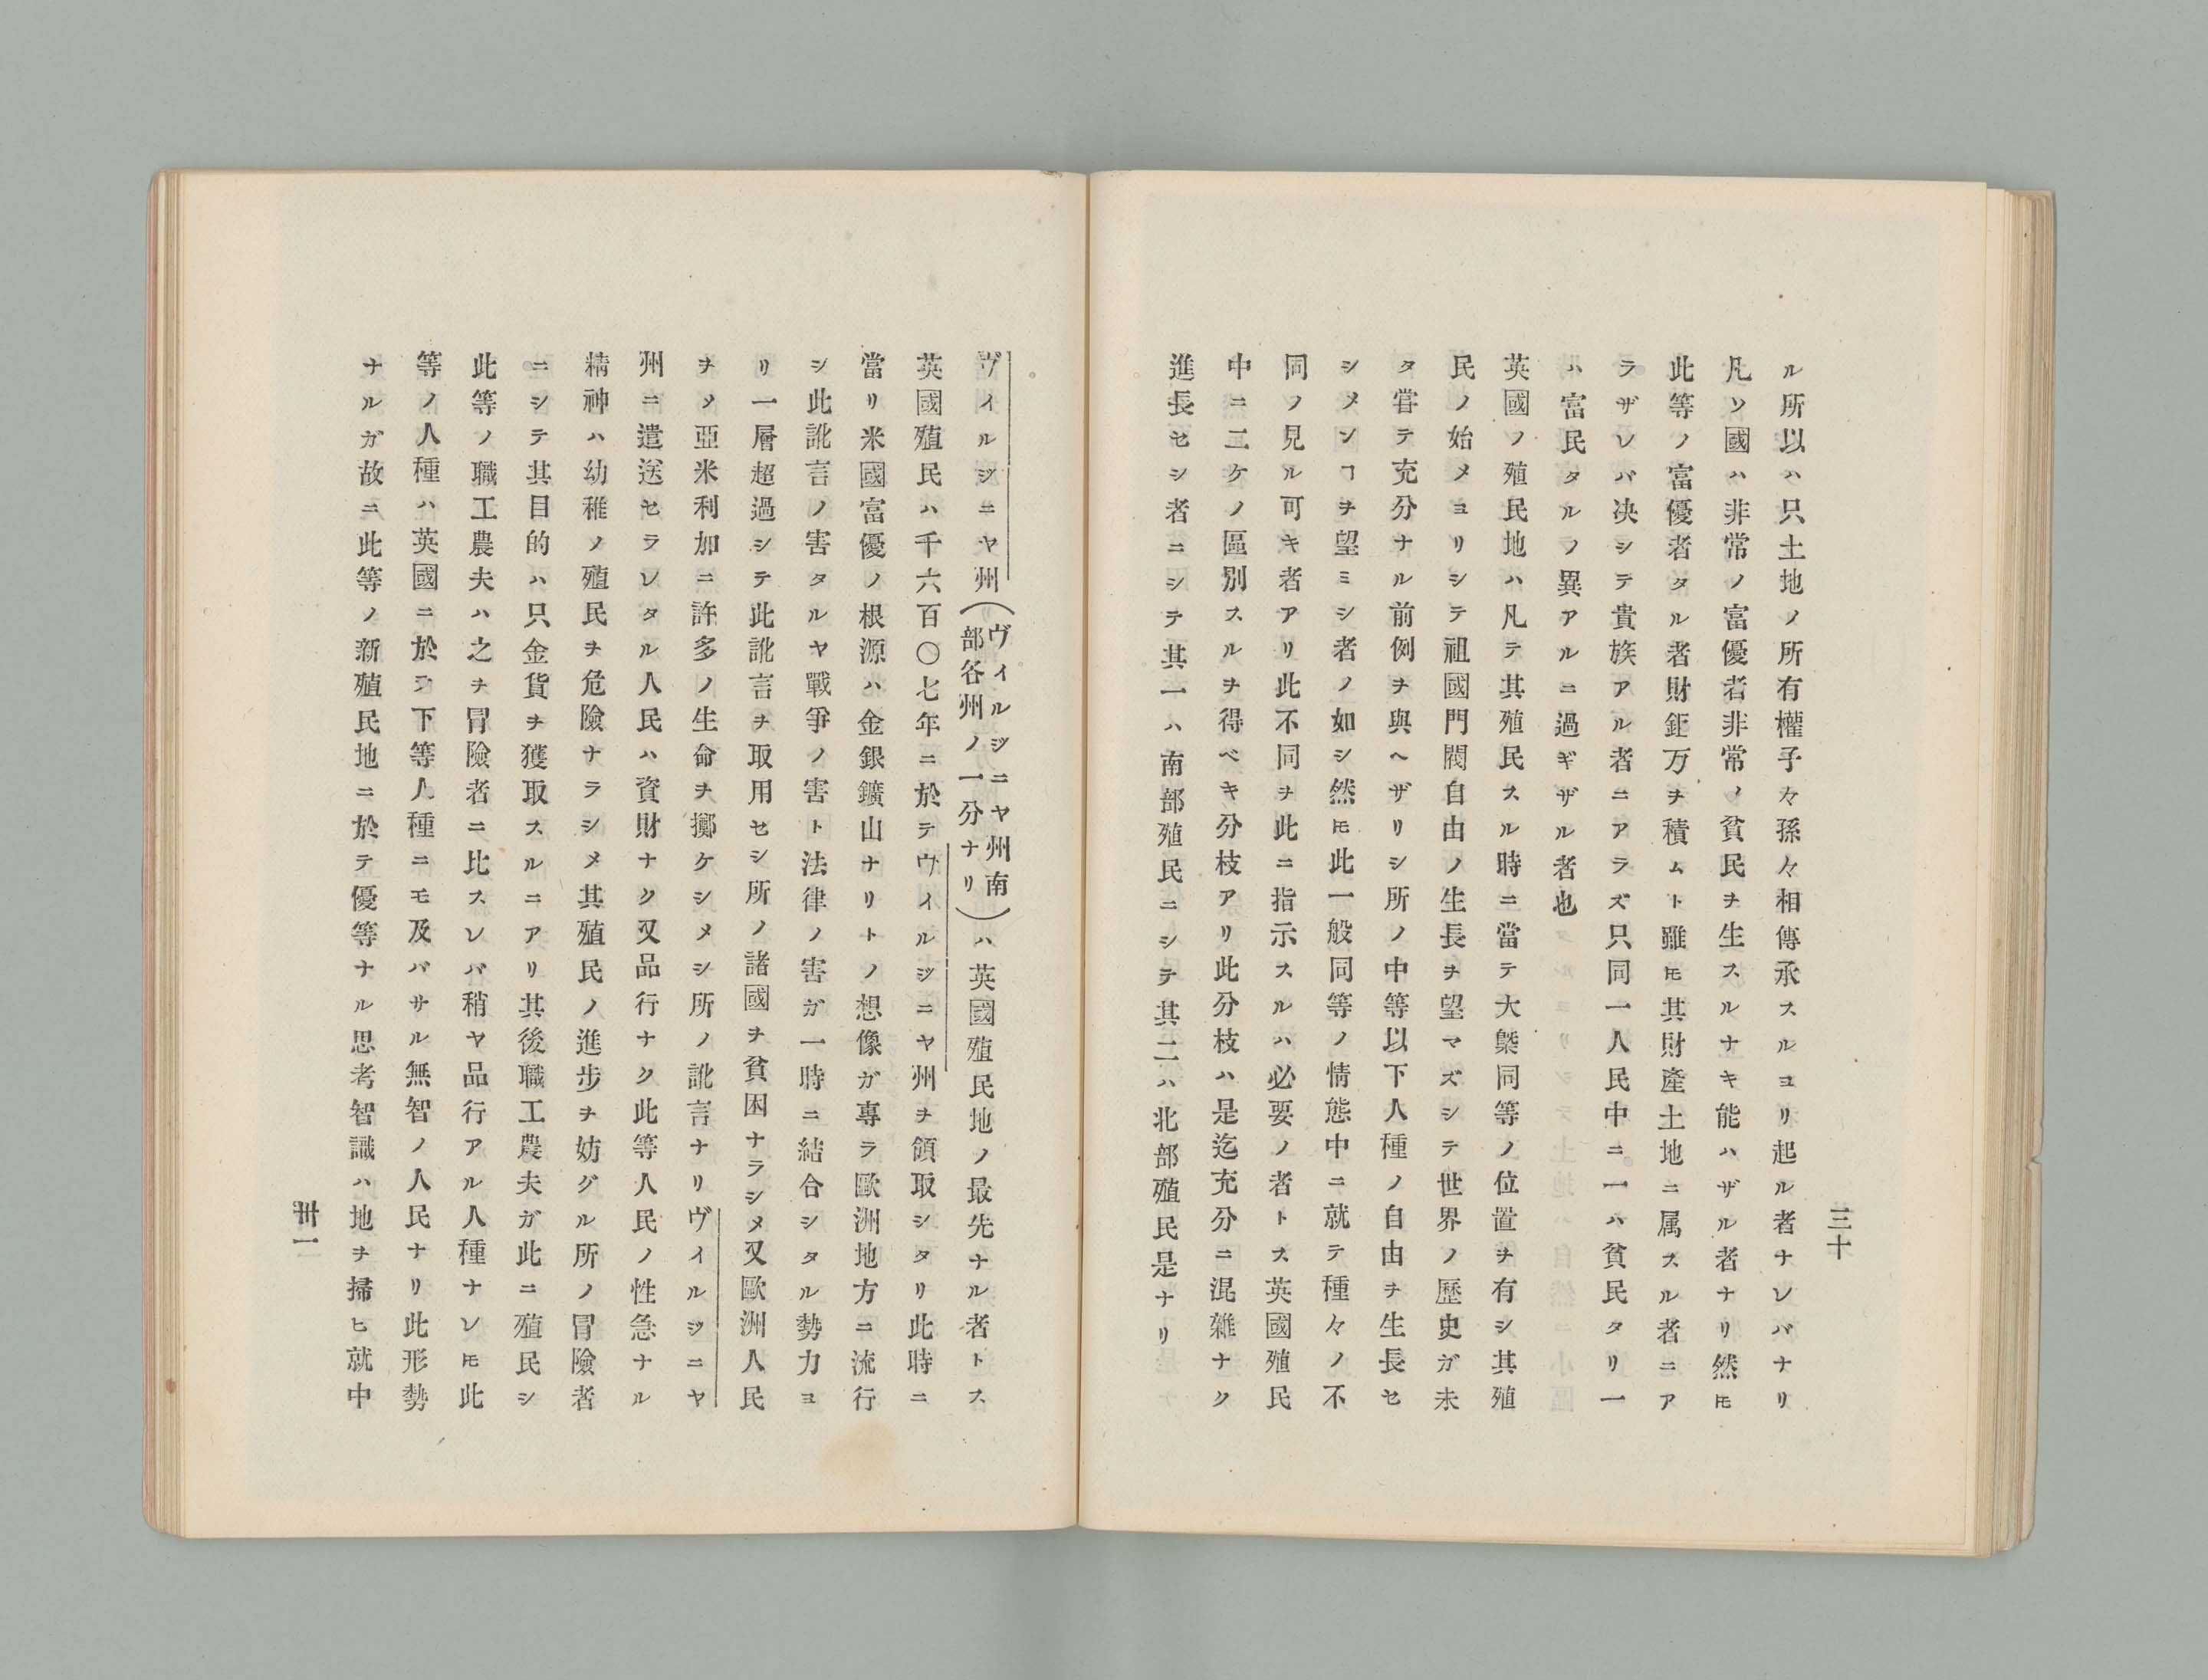 三十
ル所以ハ只土地ノ所有權子々孫々相傳承スルヨリ起ル者ナレバナリ
凡ソ國ハ非常ノ富優者非常ノ貧民ヲ生スルナキ能ハザル者ナリ然𪜈
此等ノ富優者タル者財鉅万ヲ積ムト雖𪜈其財產土地ニ属スル者ニア
ラザレバ决シテ貴族アル者ニアラズ只同一人民中ニ一ハ貧民タリ一
ハ富民タルノ異アルニ過ギザル者也
英國ノ殖民地ハ凡テ其殖民スル時ニ當テ大槩同等ノ位置ヲ有シ其殖
民ノ始メヨリシテ祖國門閥自由ノ生長ヲ望マズシテ世界ノ歷史ガ未
タ甞テ充分ナル前例ヲ與ヘザリシ所ノ中等以下人種ノ自由ヲ生長セ
シメンヿヲ望ミシ者ノ如シ然𪜈此一般同等ノ情態中ニ就テ種々ノ不
同ノ見ル可キ者アリ此不同ヲ此ニ指示スルハ必要ノ者トス英國殖民
中ニ二ケノ區別スルヲ得ベキ分枝アリ此分枝ハ是迄充分ニ混雜ナク
進長セシ者ニシテ其一ハ南部殖民ニシテ其二ハ北部殖民是ナリ
ヴィルジニヤ州(ヴィルジニヤ州南部谷州ノ一分ナリ)ハ英國殖民地ノ最先ナル者トス
英國殖民ハ千六百〇七年ニ於テヴィルジニヤ州ヲ領取シタリ此時ニ
當リ米國富優ノ根源ハ金銀鑛山ナリトノ想像ガ專ラ歐洲地方ニ流行
シ此訛言ノ害タルヤ戰爭ノ害ト法律ノ害ガ一時ニ結合シタル勢力ヨ
リ一層超過シテ此訛言ヲ取用セシ所ノ諸國ヲ貧困ナラシメ又歐洲人民
ヲメ亞米利加ニ許多ノ生命ヲ擲ケシメシ所ノ訛言ナリヴィルジニヤ
州ニ遣送セラレタル人民ハ資財ナク又品行ナク此等人民ノ性急ナル
精神ハ幼稚ノ殖民ヲ危險ナラシメ其殖民ノ進步ヲ妨グル所ノ冒險者
ニシテ其目的ハ只金貨ヲ獲取スルニアリ其後職工農夫ガ此ニ殖民シ
此等ノ職工農夫ハ之ヲ冒險者ニ比スレバ稍ヤ品行アル人種ナレ𪜈此
等ノ人種ハ英國ニ於テ下等人種ニモ及バサル無智ノ人民ナリ此形勢
ナルガ故ニ此等ノ新殖民地ニ於テ優等ナル思考智識ハ地ヲ掃ヒ就中
卅一